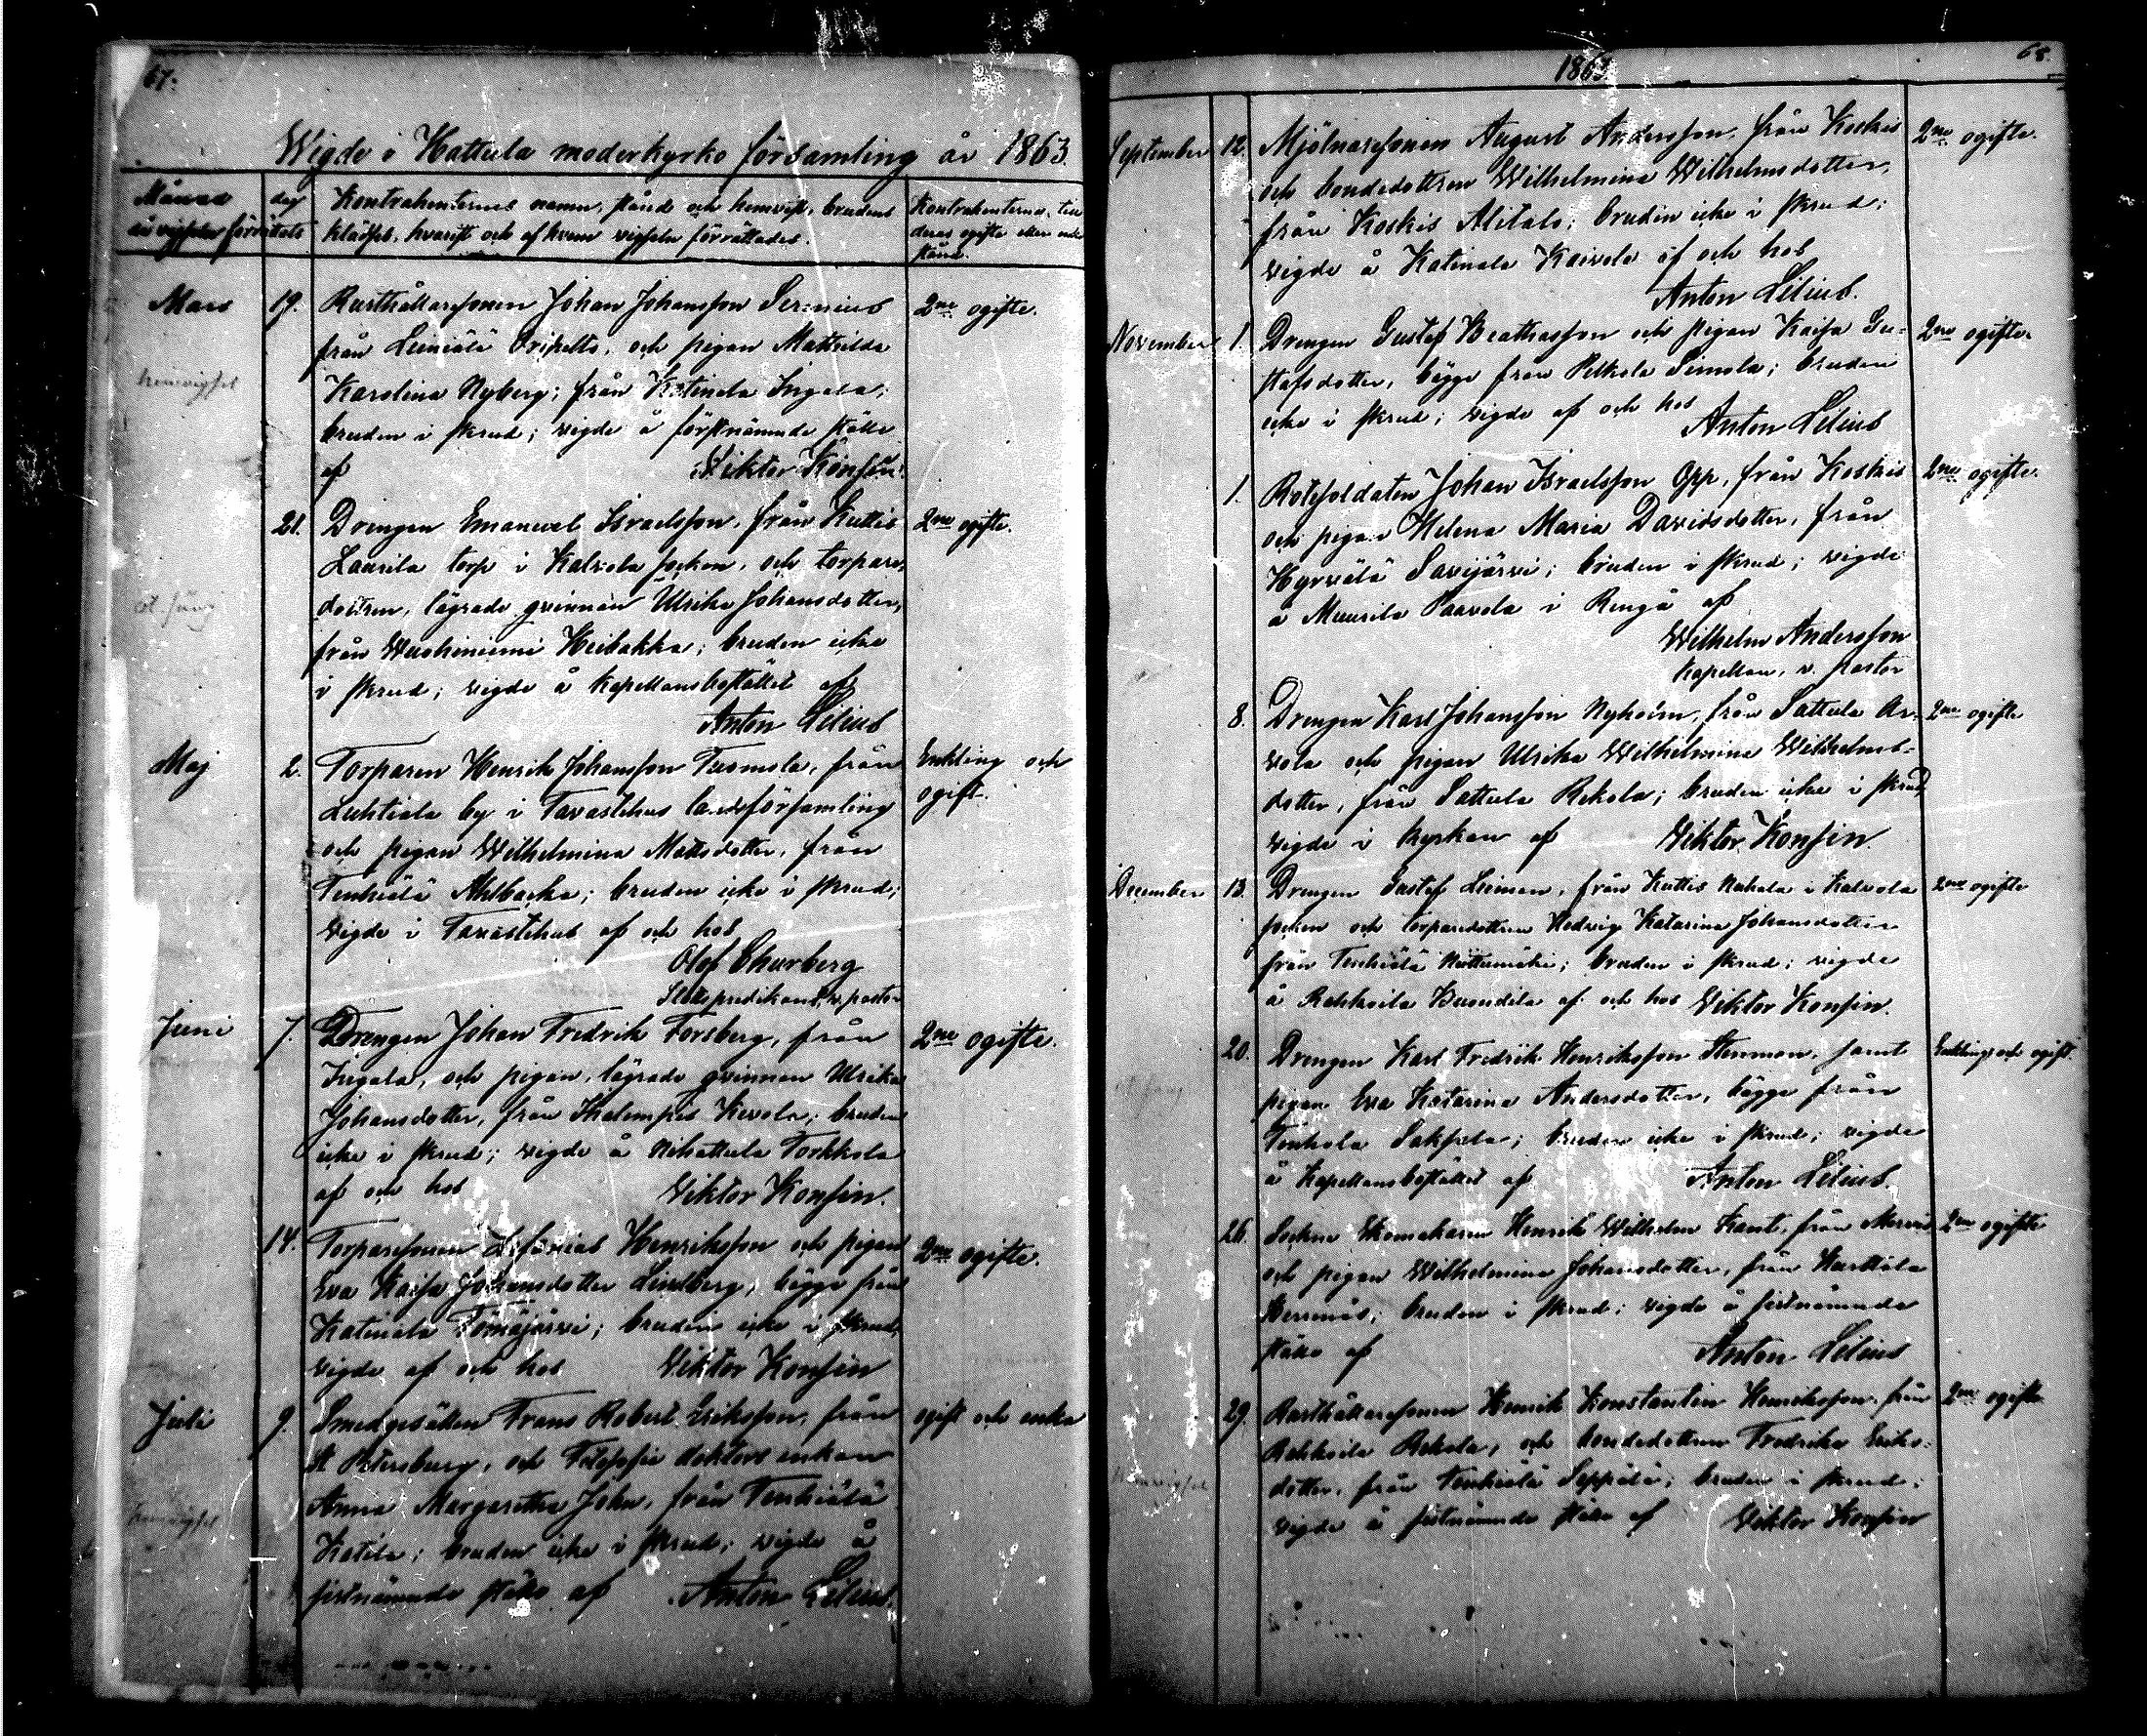 67.
Wigde i Hattula moderkyrko församling år 1863.
Månad
dag
Kontrahenternes namn, stånd och hemvist, brudens
klädsel, hvarest och af hvem vigseln förrättades.
Kontrahenterne, tili
deras ogifte eller enke
stånd.
då vigseln förrättats
Mars 19. Rusthållaresonen Johan Johansson Serenius
2ne ogifte.
från Leiniälä Oripelto, och pigan Mathilda
hemvigsel
Karolina Nyberg; från Katinala Ingala;
bruden i skrud; vigde å förstnämnde ställe
af Viktor Konsin.
21. Drengen Emanuel Israelsson, från Kuttis
2ne ogifte.
Laurila torp i Kalvola socken, och torpare
dottren, lägrade qvinnan Ulrika Johansdotter,
från Wuohiniemi Heikakka; bruden icke
i skrud; vigde å kapellansbostället af
Anton Lilius
Maj 2. Torparen Henrik Johansson Tuomola, från
Enkling och
Luhtiala by i Tavastehus landsförsamling
ogift.
och pigan Wilhelmina Mattsdotter, från
Tenhiälä Ahlbacka; bruden icke i skrud;
vigde i Tavastehus af och hos
Olof Churberg
Slottspredikant, v. pastor
Juni 7. Drengen Johan Fredrik Forsberg, från
2ne ogifte.
Ingala, och pigan, lägrade qvinnan Ulrika
Johansdotter, från Ihalempis Kevola; bruden
icke i skrud; vigde å Nihattula Torkkola
af och hos Viktor Konsin.
14. Torparesonen Zefanias Henriksson och pigan
2ne ogifte.
Eva Kaisa Johansdotter Lindberg, bägge från
Katinala Tömäjärvi; bruden icke i skrud,
vigde af och hos Viktor Konsin
Juli 9. Smedgesällen Frans Robert Eriksson, från
ogift och enka
St Petersburg, och Filosofie doktors enkan
Anna Margaretha John, från Tenhiälä
hemvigsel
Katila; bruden icke i skrud; vigde å
sistnämnde ställe af Anton Lilius.
1863.
68.
September 12. Mjölnaresonen August Andersson, från Koskis
2ne ogifte.
och bondedottren Wilhelmina Wilhelmsdotter,
från Koskis Alitalo; bruden icke i skrud;
vigde å Katinala Kaivola af och hos
Anton Lilius.
November 1. Drengen Gustaf Beathasson och pigan Kaisa Gu-
2ne ogifte.
stafsdotter, bägge från Pelkola Simola; bruden
icke i skrud; vigde af och hos
Anton Lilius
1. Rotesoldaten Johan Israelsson Opp, från Koskis
2ne ogifte.
och pigan Helena Maria Davidsdotter, från
Hyrvälä Savijärvi; bruden i skrud; vigde
å Muurila Paavola i Rengå af
Wilhelm Andersson
Kapellan, v. pastor
8. Drengen Karl Johansson Nyholm, från Sattula Ar-
2ne ogifte
vola och pigan Ulrika Wilhelmina Wilhelms-
dotter, från Sattula Rekola; bruden icke i skrud,
vigde i kyrkan af Viktor Konsin.
December 13. Drengen Gustaf Leinon, från Kuttis Nuhala i Kalvola
2ne ogifte
socken och torparedottren Hedvig Katarina Johansdotter
från Tenhiälä Niittumäki; bruden i skrud; vigde
å Rahkoila Buondila af och hos Viktor Konsin.
20. Drengen Karl Fredrik Henriksson Stenman, samt
Enkling och ogift.
pigan Eva Katarina Andersdotter, bägge från
Tenhola Sakpela; bruden icke i skrud; vigde
å Kapellansbostället af Anton Lilius.
26. Socken Skomakaren Henrik Wilhelm Kant, från Mervi
2ne ogifte
och pigan Wilhelmina Johansdotter, från Hurttala
Bernäs; bruden i skrud; vigde å sistnämnde
ställe af Anton Lilius
29. Rusthållaresonen Henrik Konstantin Henriksson, från
2ne ogifte
Rahkoila Rekola, och bondedottren Fredrika Eriks-
dotter, från Tenhiälä Seppälä; bruden i skrud;
hemvigsel
vigde å sistnämnde ställe af Viktor Konsin